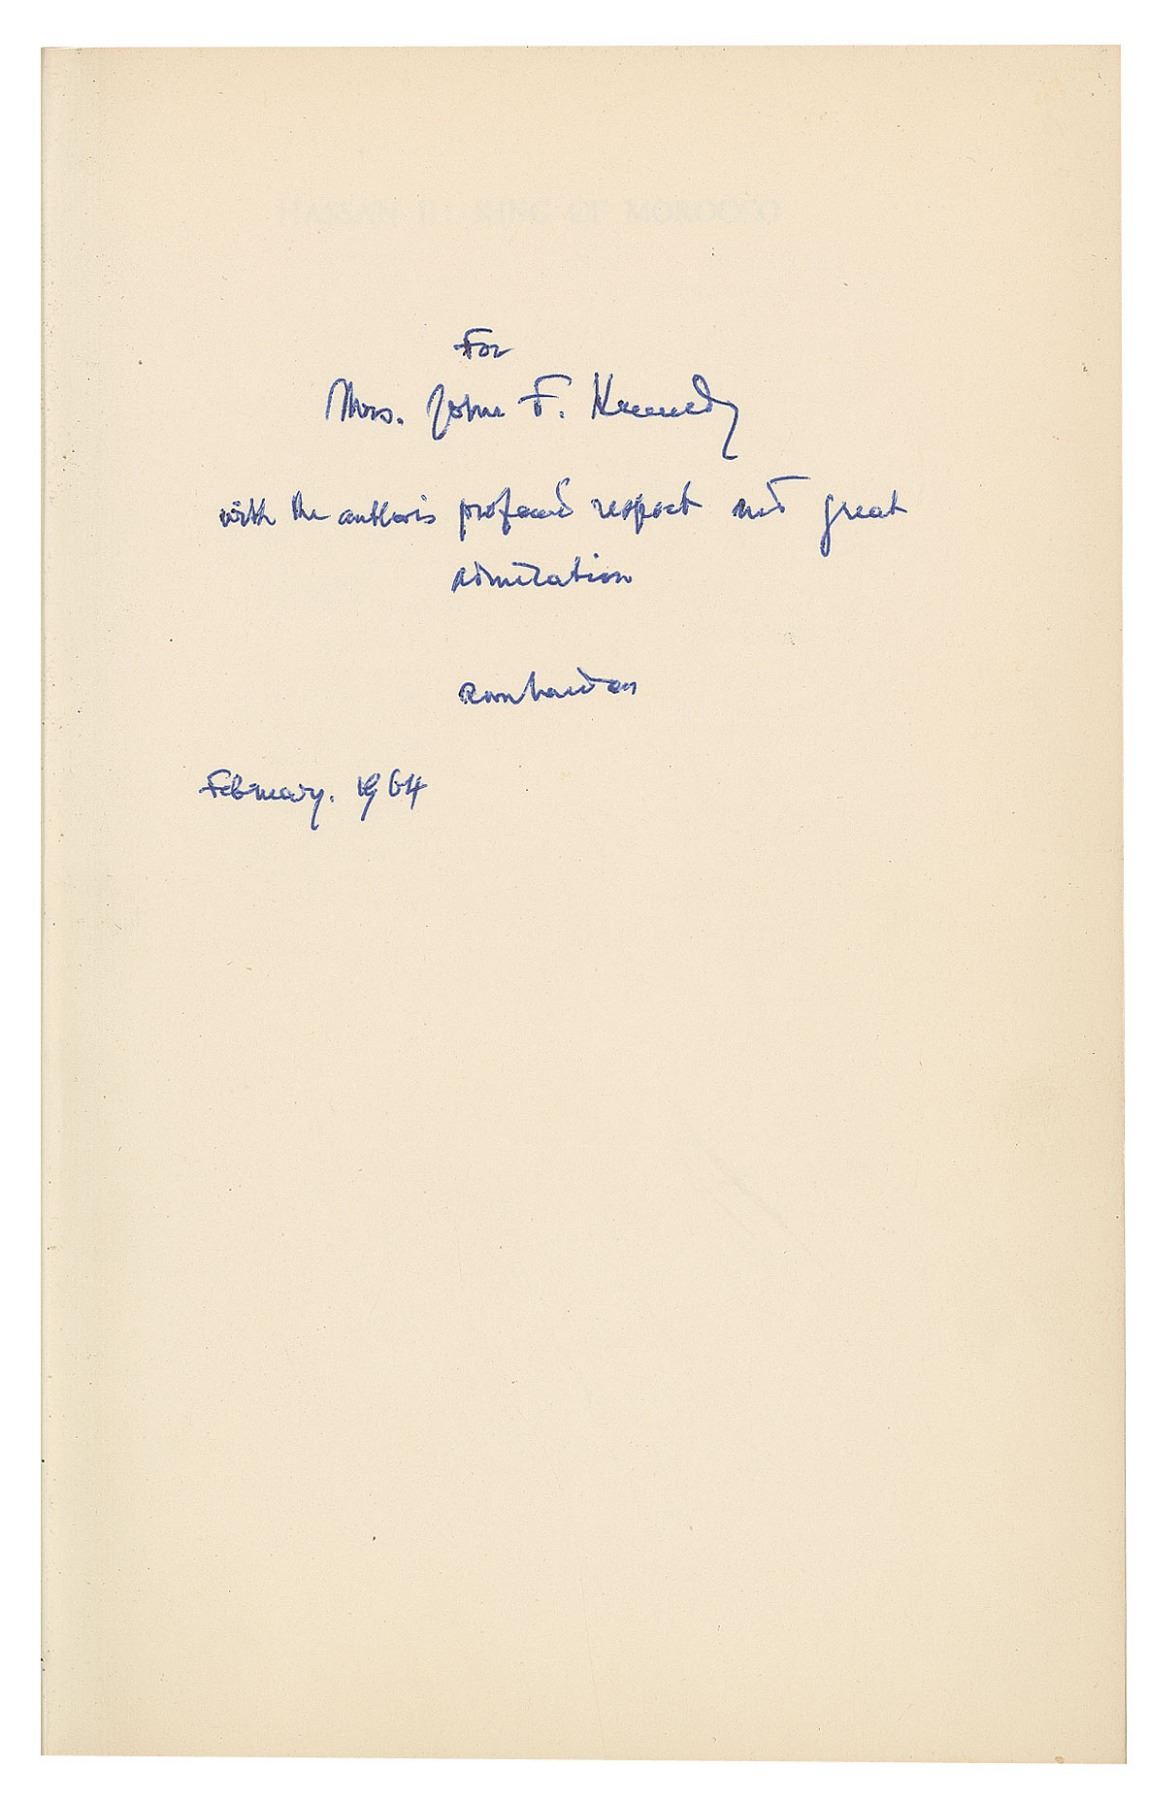 HASSAN II: KING OF MOROCCO
For
Mrs. John F. Kennedy
with the author's profound respect and great
admiration
Rom Landau
February. 1964